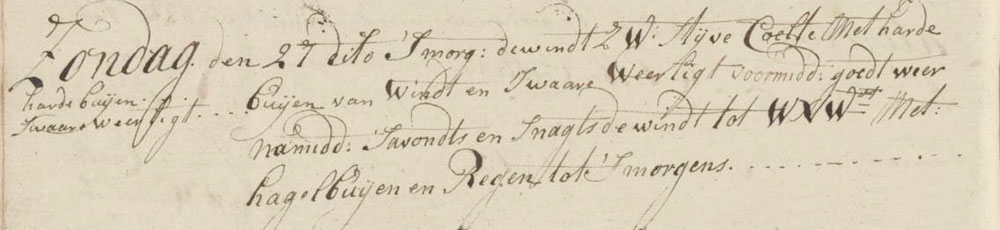 Zondag. den 27 dito 'Smorg: dewindt ZW. Stijve Coelte Met harde
harde buijen.
Zwaare weerligt....
buijen van windt en Zwaare weerligt voormidd: goedt weer
namidd: Savondts en Snagts de windt tot WNW Met:
hagelbuijen en Regen tot 'Smorgens.